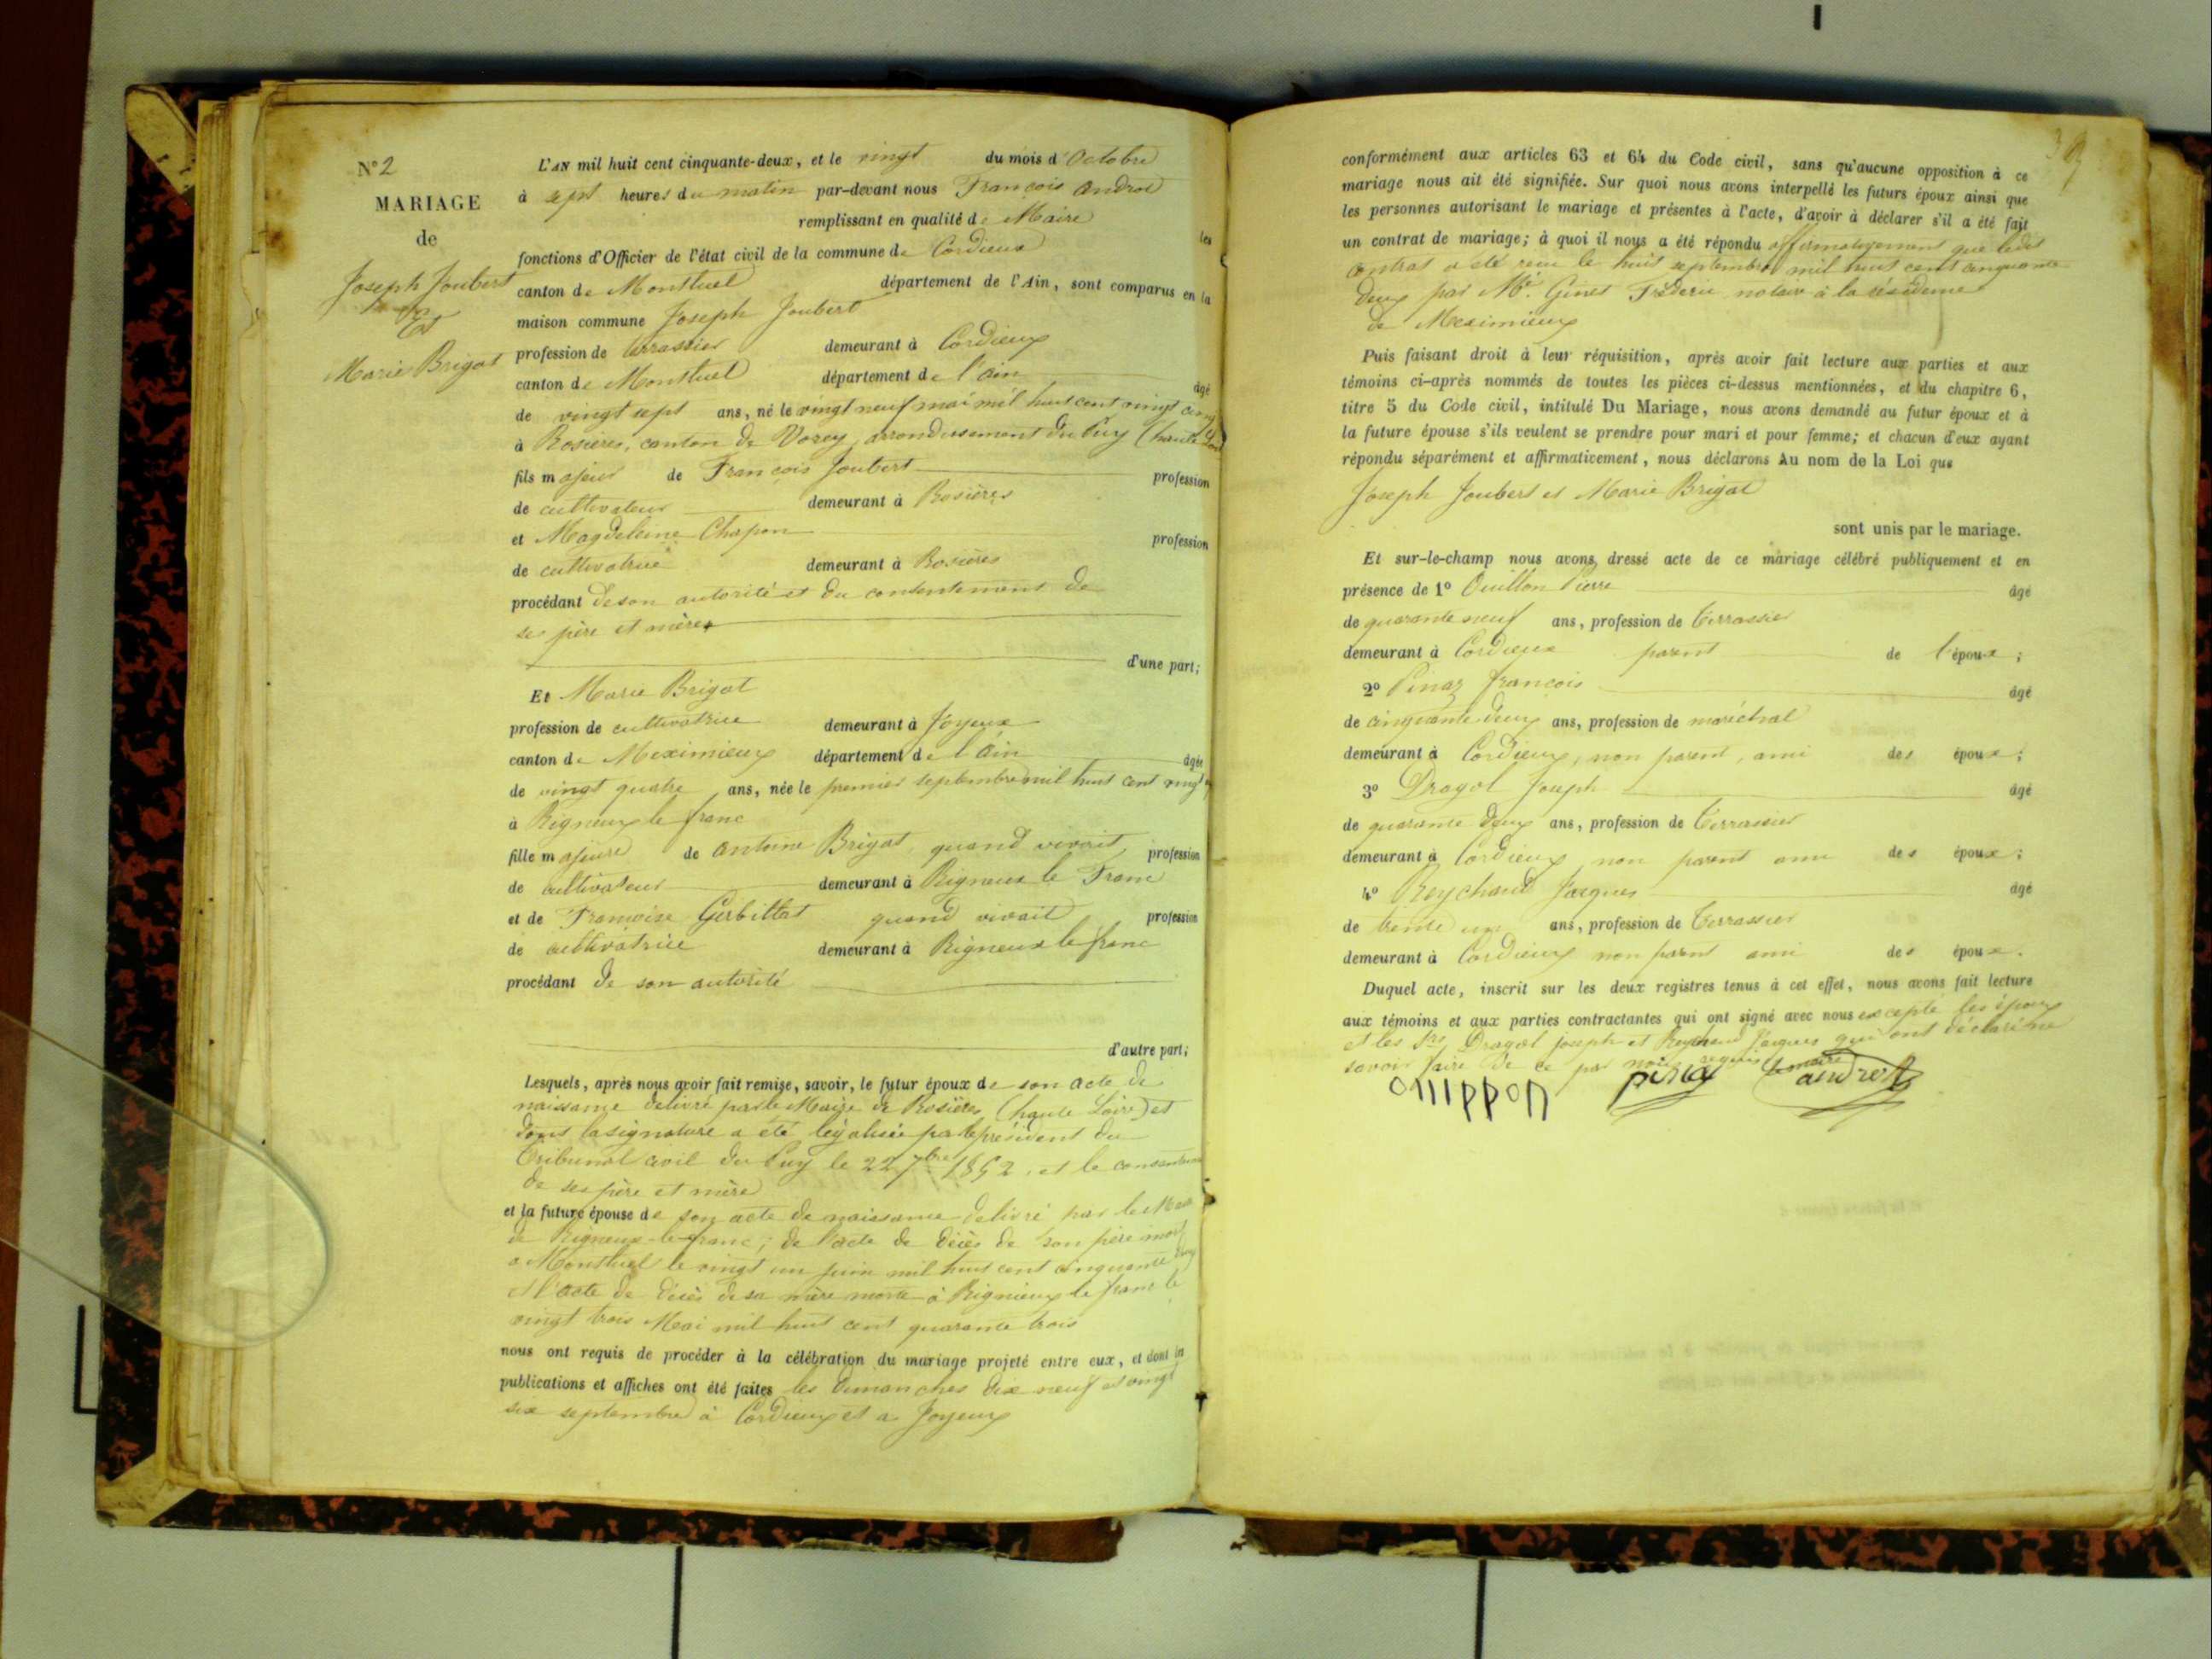 N° 2
MARIAGE
de
Joseph Joubert
Et
Marie Brigat
L'AN mil huit cent cinquante-deux, et le vingt du mois d'Octobre
à sept heures du matin par-devant nous François Androd
remplissant en qualité de Maire les
fonctions d'Officier de l'état civil de la commune de Cordieux
canton de Montluel département de l'Ain, sont comparus en la
maison commune Joseph Joubert
profession de terrassier demeurant à Cordieux
canton de Montluel département de l'ain âgé
de vingt sept ans, né le vingt neuf mai mil huit cent vingt cinq
à Rosières, canton de Vorey, arrondissement du Puy (haute Loire
fils majeur de François Joubert profession
de cultivateur demeurant à Rosières
et Magdeleine Chapon profession
de cultivatrice demeurant à Rosières
procédant de son autorité et du consentement de
ses père et mère
d'une part;
Et Marie Brigat
profession de cultivatrice demeurant à Joyeux
canton de Meximieux département de l'ain âgée
de vingt quatre ans, née le premier septembre mil huit cent vingt
à Rigneux le franc
fille majeure de antoine Brigat, quand vivait, profession
de cultivateur demeurant à Rigneux le Franc
et de Françoise Gerbillat quand vivait profession
de cultivatrice demeurant à Rigneux le franc
procédant de son autorité
d'autre part;
Lesquels, après nous avoir fait remise, savoir, le futur époux de son acte de
naissance delivré par le Maire de Rosières (haute Loire) et
dont la signature a été légalisée par le président du
Tribunal civil du Puy le 22 7bre 1852, et le consentement
de ses père et mère
et la future épouse de son acte de naissance delivré par le Maire
de Rigneux-le-franc; de l'acte de décès de son père mort
a Montluel le vingt un juin mil huit cent cinquante deux
et l'acte de décès de sa mère morte à Rignieux le franc le
vingt trois Mai mil huit cent quarante trois
nous ont requis de procéder à la célébration du mariage projeté entre eux, et dont les
publications et affiches ont été faites les dimanches dix neuf et vingt
six septembre à Cordieux et a Joyeux
39
conformément aux articles 63 et 64 du Code civil, sans qu'aucune opposition à ce
mariage nous ait été signifiée. Sur quoi nous avons interpellé les futurs époux ainsi que
les personnes autorisant le mariage et présentes à l'acte, d'avoir à déclarer s'il a été fait
un contrat de mariage; à quoi il nous a été répondu affirmativement que ledit
contrat a été reçu le huit septembre mil huit cent cinquante
deux par Me. Ginet Fréderic notaire à la résidence
de Meximieux
Puis faisant droit à leur réquisition, après avoir fait lecture aux parties et aux
témoins ci-après nommés de toutes les pièces ci-dessus mentionnées, et du chapitre 6,
titre 5 du Code civil, intitulé Du Mariage, nous avons demandé au futur époux et à
la future épouse s'ils veulent se prendre pour mari et pour femme; et chacun d'eux ayant
répondu séparément et affirmativement, nous déclarons Au nom de la Loi que
Joseph Joubert et Marie Brigat
sont unis par le mariage.
Et sur-le-champ nous avons dressé acte de ce mariage célébré publiquement et en
présence de 1° Ouillon Pierre âgé
de quarante neuf ans, profession de Terrassier
demeurant à Cordieux parent de l'époux;
2° Pinaz françois âgé
de cinquante deux ans, profession de maréchal
demeurant à Cordieux, non parent, ami des époux;
3° Dragol Joseph âgé
de quarante deux ans, profession de Terrassier
demeurant à Cordieux non parent ami des époux;
4° Reychaud Jacques âgé
de trente un ans, profession de Terrassier
demeurant à Cordieux non parent ami des époux.
Duquel acte, inscrit sur les deux registres tenus à cet effet, nous avons fait lecture
aux témoins et aux parties contractantes qui ont signé avec nous excepté les époux
et les Srs Dragol Joseph et Reychaud Jacques qui ont déclaré ne
savoir faire de ce par nous requis
le maire
pinaz androd